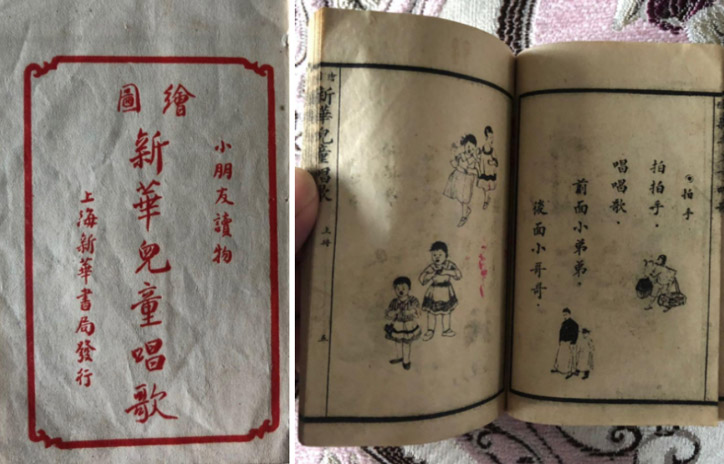 繪圖
小朋友讀物
新華兒童唱歌
上海新華書局發行
拍手
拍拍手．
唱唱歌．
前面小弟弟．
後面小哥哥．
新華兒童唱歌
上冊
五